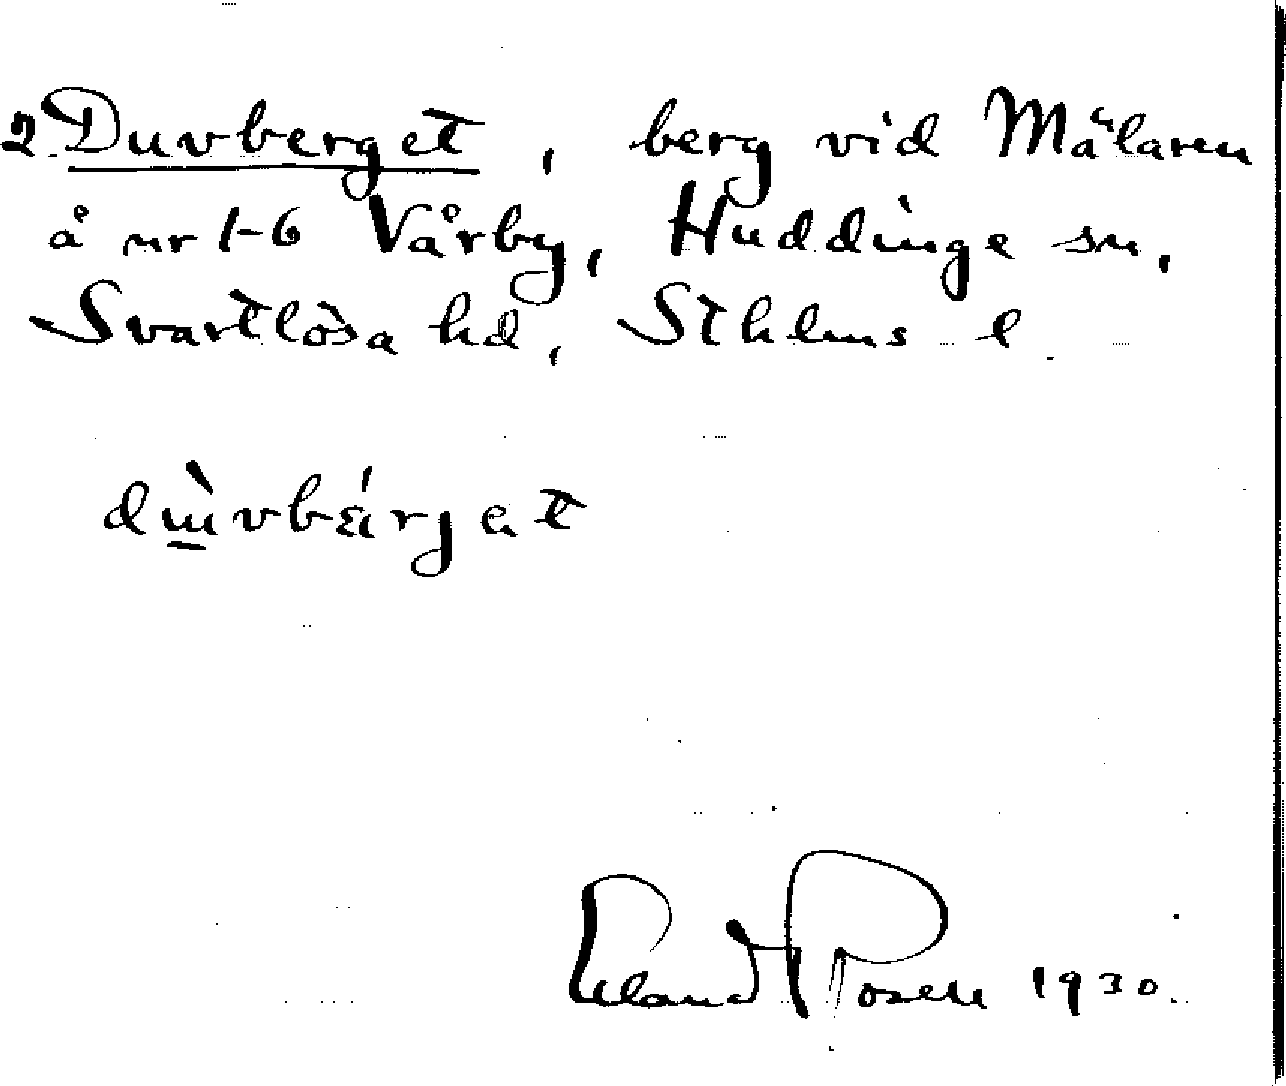 2. Duvberget, berg vid Mälaren
å nr 1-6 Vårby, Huddinge sn,
Svartlösa hd, Sthlms l.
1930.